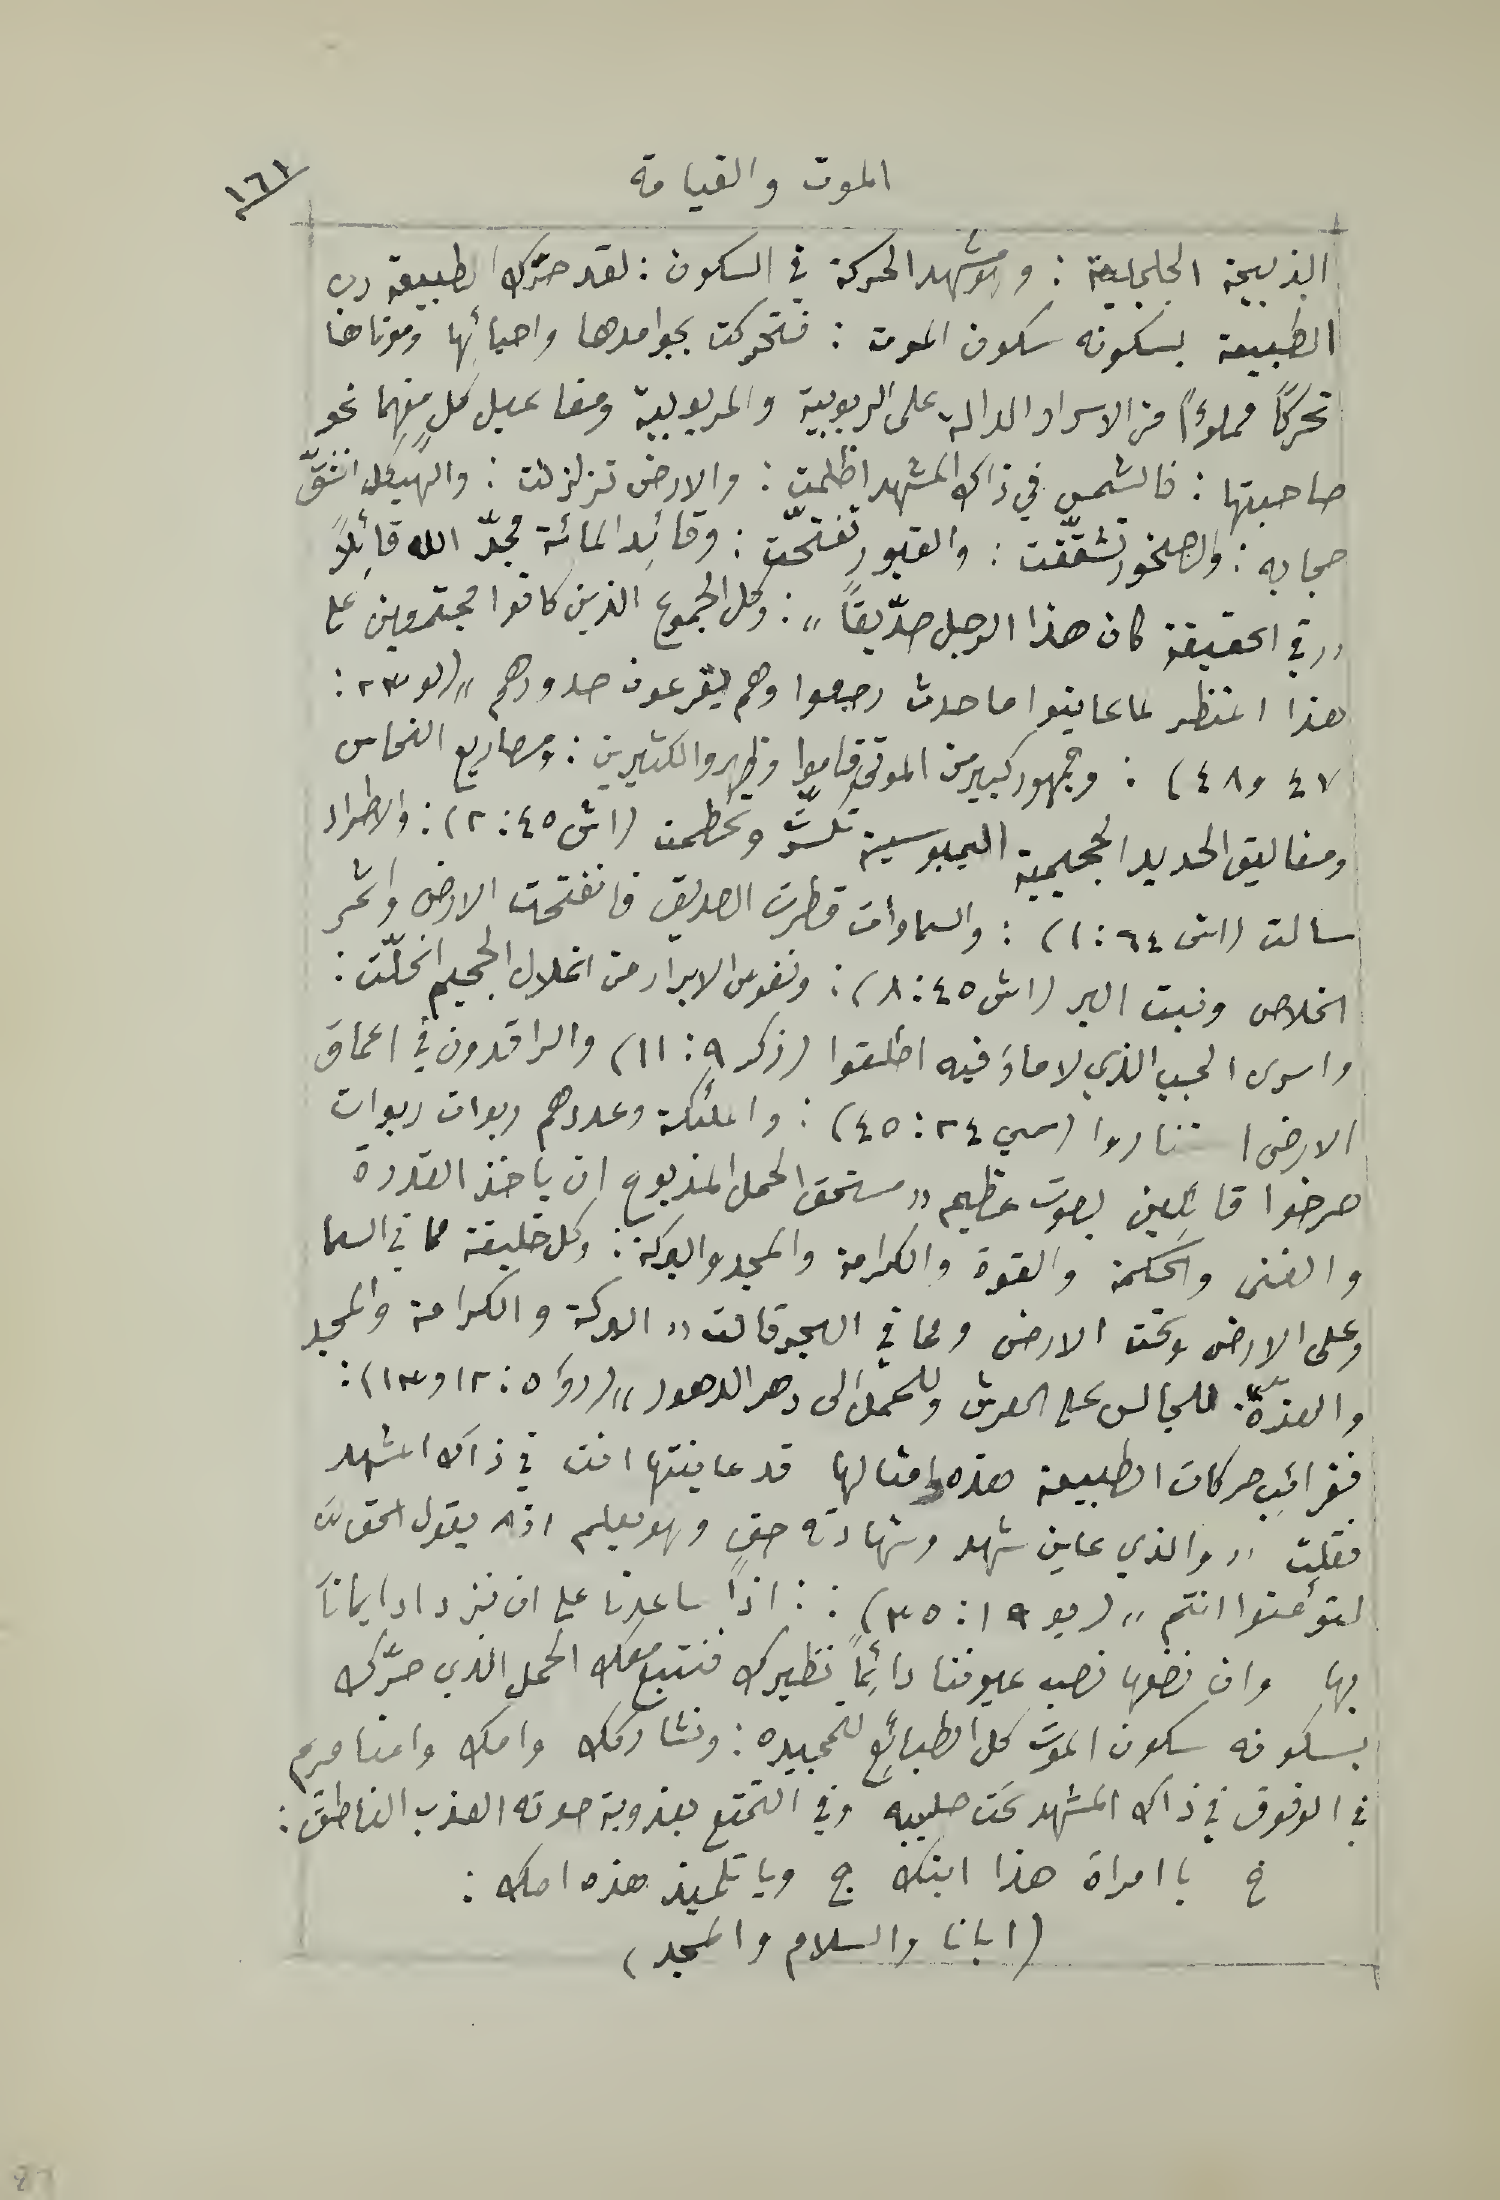 الموت والقيامة
١٦١
الذبيحة الجلجلية : وهو مشهد الحركة في السكون : لقد حرّك الطبيعة رب
الطبيعة بسكونه سكون الموت : فتحركت بجوامدها واحيائها وموتاها
تحركًا مملوءًا من الاسرار الدالة على الربوبية والمربوبية ومفاعيل كلٍ منهما نحو
صاحبتها : فالشمس في ذاك المشهد اظلمت : والارض تزلزلت : والهيكل انشقّ
حجابه : والصخور تشقّقت : والقبور تفتّحت : وقائد المائة مجدّ الله قائلاً
"في الحقيقة كان هذا الرجل صدّيقاً" : وكل الجموع الذين كانوا مجتمعين على
هذا المنظر لما عاينوا ما حدث رجعوا وهم يقرعون صدورهم" (لو ٢٣ :
٤٧ و ٤٨) : وجمهور كبير من الموتى قاموا وظهروا لكثيرين : ومصاريع النحاس
ومغاليق الحديد الجحيمية اليمبوسية تكسّرت وتحطمت (اش ٤٥ : ٢) : والاطواد
سالت (اش ٦٤ : ١) : والسماوات قطرت الصديق فانفتحت الارض واثمر
الخلاص ونبت البر (اش ٤٥ : ٨) : ونفوس الابرار من اغلال الجحيم انحلّت :
واسرى الجب الذي لا ماءَ فيه اطلقوا (زكر ٩ : ١١) والراقدون في اعماق
الارض استناروا (سي ٢٤ : ٤٥) : والملئكة وعددهم ربوات ربوات
صرخوا قائلين بصوت عظيم "مستحق الحمل المذبوح ان ياخذ القدرة
والغنى والحكمة والقوة والكرامة والمجد والبركة : وكل خليقة مما في السما
وعلى الارض وتحت الارض ومما في البحر قالت " البركة والكرامة والمجد
والعزّة للجالس على العرش وللحمل الى دهر الدهور" (رؤ ٥ : ١٢ و ١٣) :
فغرائب حركات الطبيعة هذه وامثالها قد عاينتها انت في ذاك المشهد
فقلت "والذي عاين شهد وشهادته حق وهو يعلم انه يقول الحق
لتؤمنوا انتم" (يو ١٩ : ٣٥) : : اذًا ساعدنا على ان نزداد ايماناً
بها وان نضعها نصب عيوننا دائماً نظيرك فنتبع معك الحمل الذي حرّك
بسكونه سكون الموت كل الطبائع لتمجيده : ونشاركك وامك وامنا مريم
في الوقوف في ذاك المشهد تحت صليبه وفي التمتع بعذوبة صوته العذب الناطق :
خ يا امراة هذا ابنك ج ويا تلميذ هذه امك :
(ابانا والسلام والمجد)